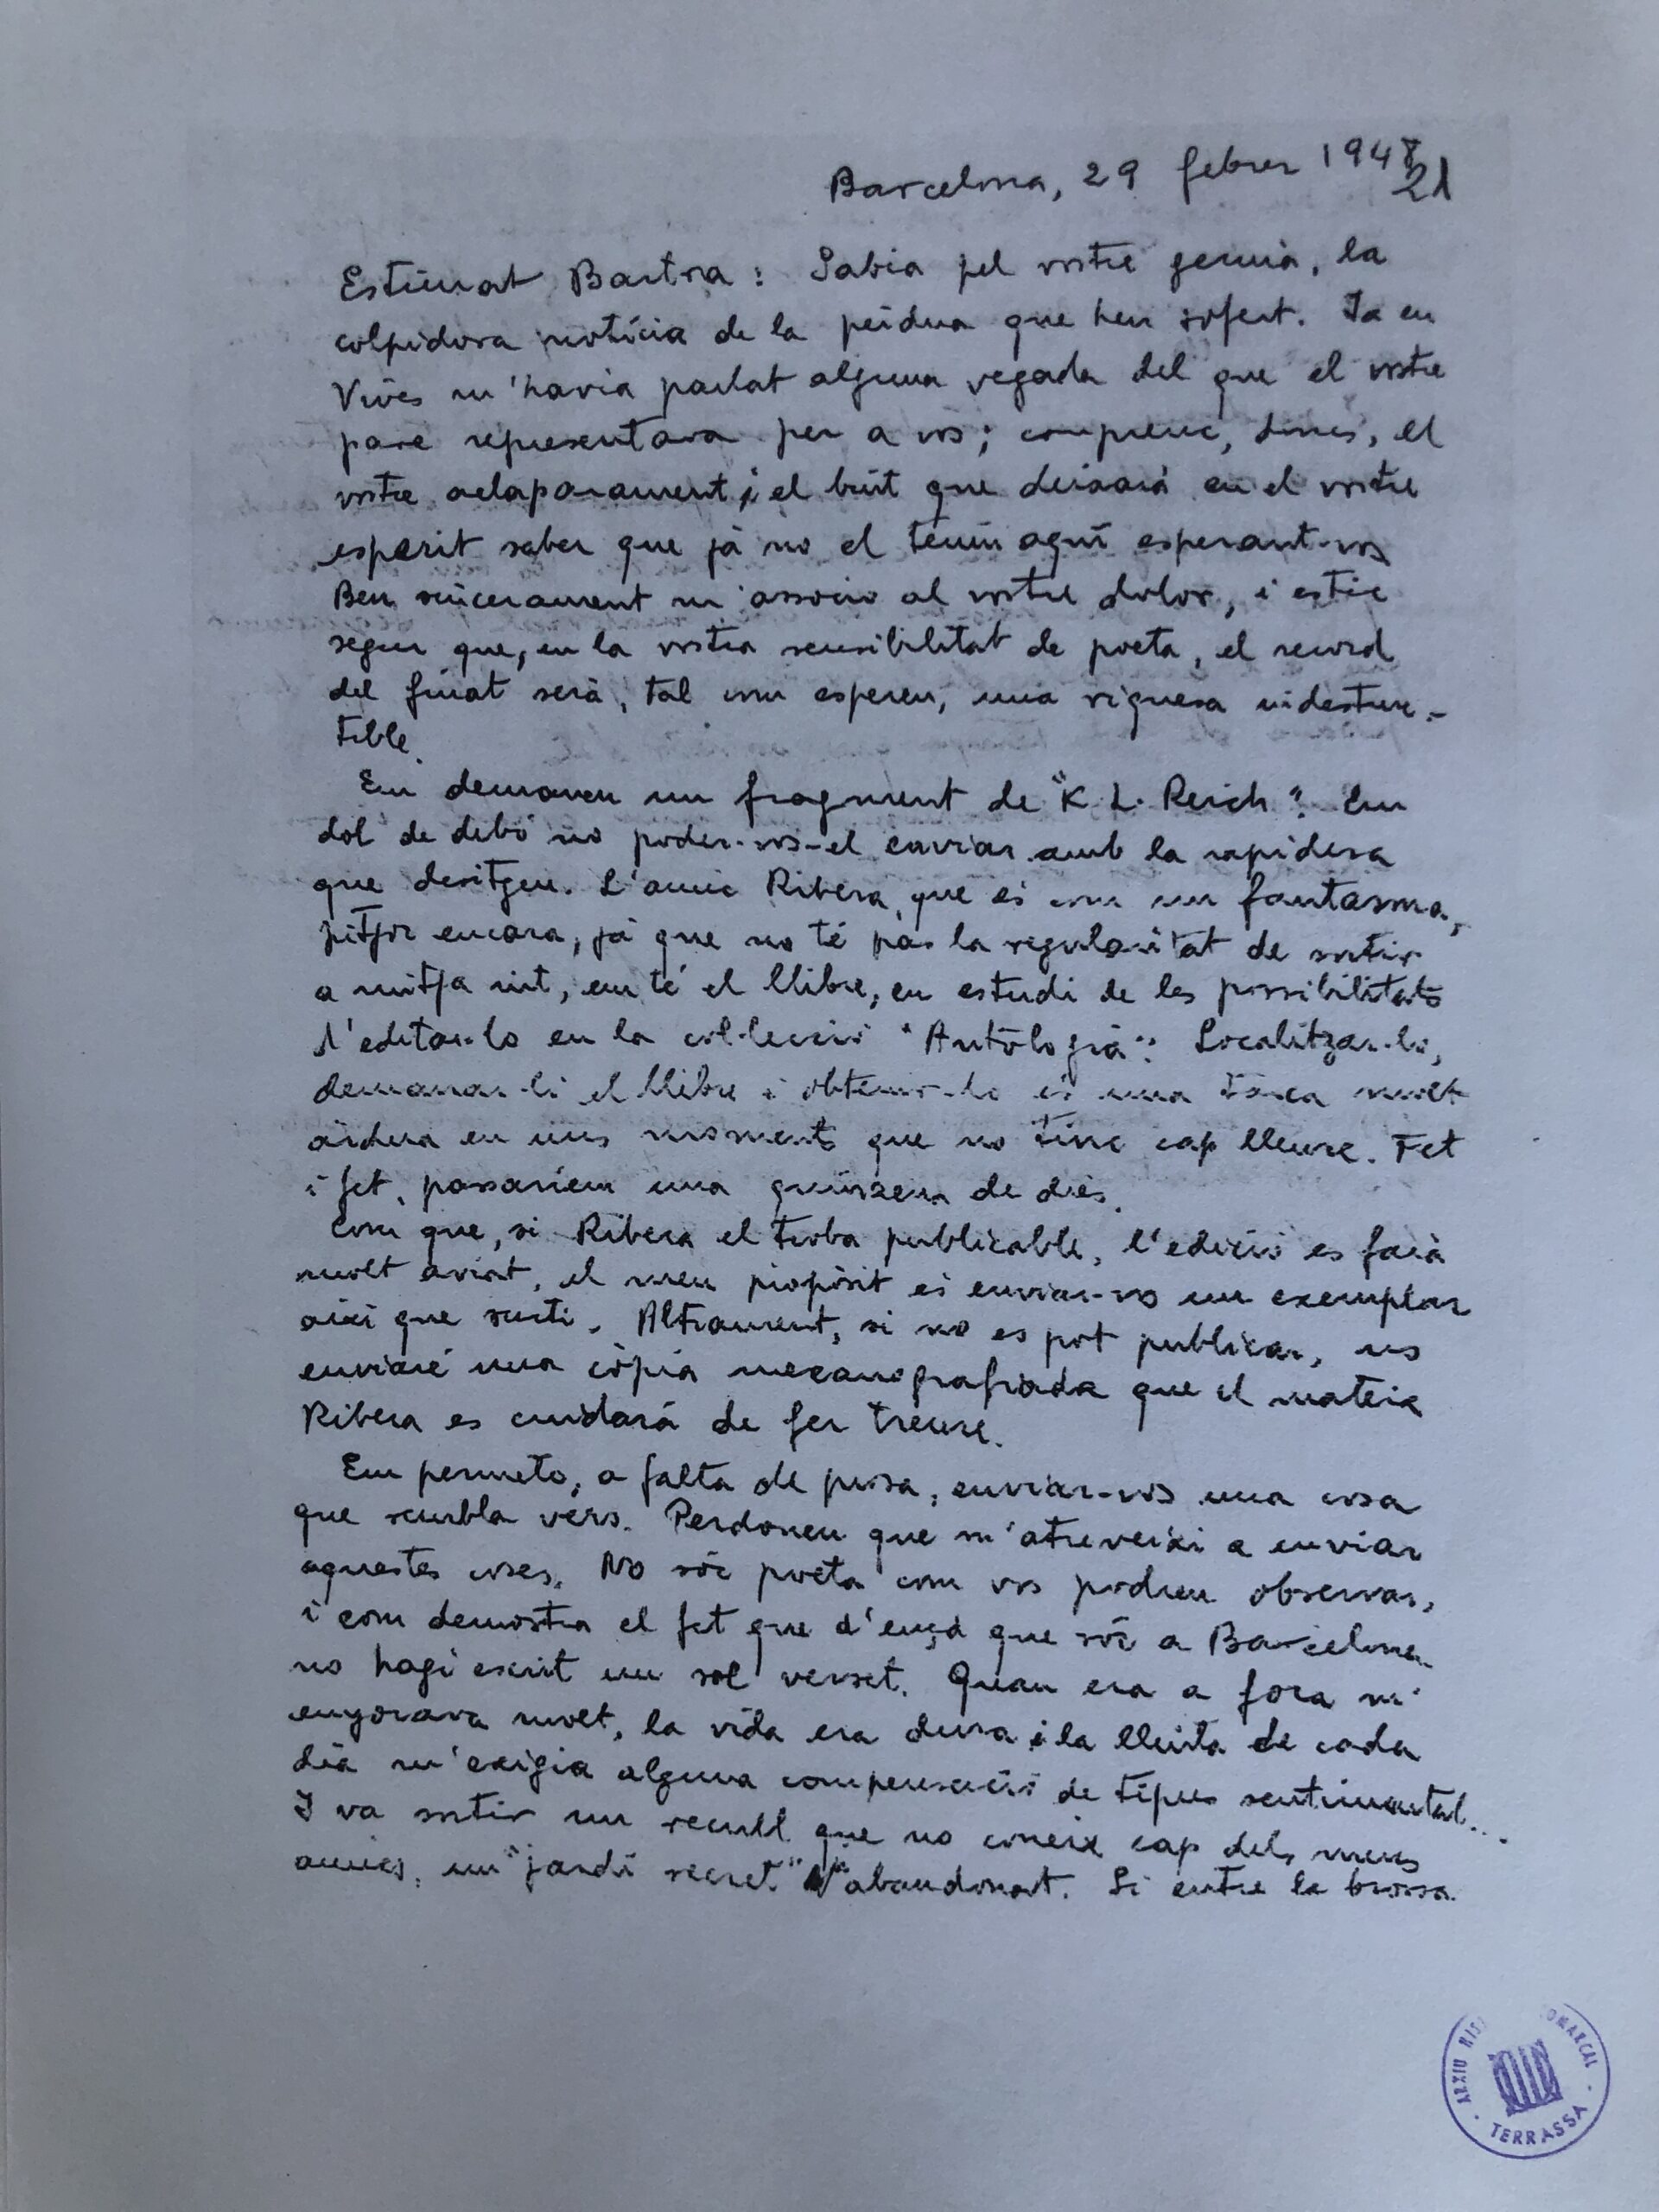 Barcelona, 29 febrer 1948
21
Estimat Bartra: Sabia pel vostre germà, la
colpidora notícia de la pèrdua que heu sofert. Ja en
Vives m'havia parlat alguna vegada del que el vostre
pare representava per a vos; comprenc, doncs, el
vostre aclaparament i el buit que deixarà en el vostre
esperit saber que ja no el teniu aquí esperant-vos
Ben sincerament m'associo al vostre dolor, i estic
segur que, en la vostra sensibilitat de poeta, el record
del finat serà, tal com espereu, una riquesa indestruc-
tible.
Em demaneu un fragment de "K. L. Reich". Em
dol de debò no poder-vos-el enviar amb la rapidesa
que desitgeu. L'amic Ribera, que és com un fantasma,
pitjor encara, ja que no té pas la regularitat de sortir
a mitja nit, em té el llibre, en estudi de les possibilitats
d'editar-lo en la col·lecció "Antologia". Localitzar-lo,
demanar-li el llibre i obtenir-lo és una tasca molt
àrdua en uns moments que no tinc cap lleure. Fet
i fet, passaríem una quinzena de dies.
Com que, si Ribera el troba publicable, l'edició es farà
molt aviat, el meu propòsit és enviar-vos un exemplar
així que surti. Altrament, si no es pot publicar, us
enviaré una còpia mecanografiada que el mateix
Ribera es cuidarà de fer treure.
Em permeto, a falta de prosa, enviar-vos una cosa
que sembla vers. Perdoneu que m'atreveixi a enviar
aquestes coses. No sóc poeta com vos podreu observar,
i com demostra el fet que d'ençà que sóc a Barcelona
no hagi escrit un sol verset. Quan era a fora m'
enyorava molt, la vida era dura i la lluita de cada
dia m'exigia alguna compensació de tipus sentimental...
I va sortir un recull que no coneix cap dels meus
amics, un "jardí secret" ja abandonat. Si entre la brossa
ARXIU HIS OMARCAL
TERRASSA